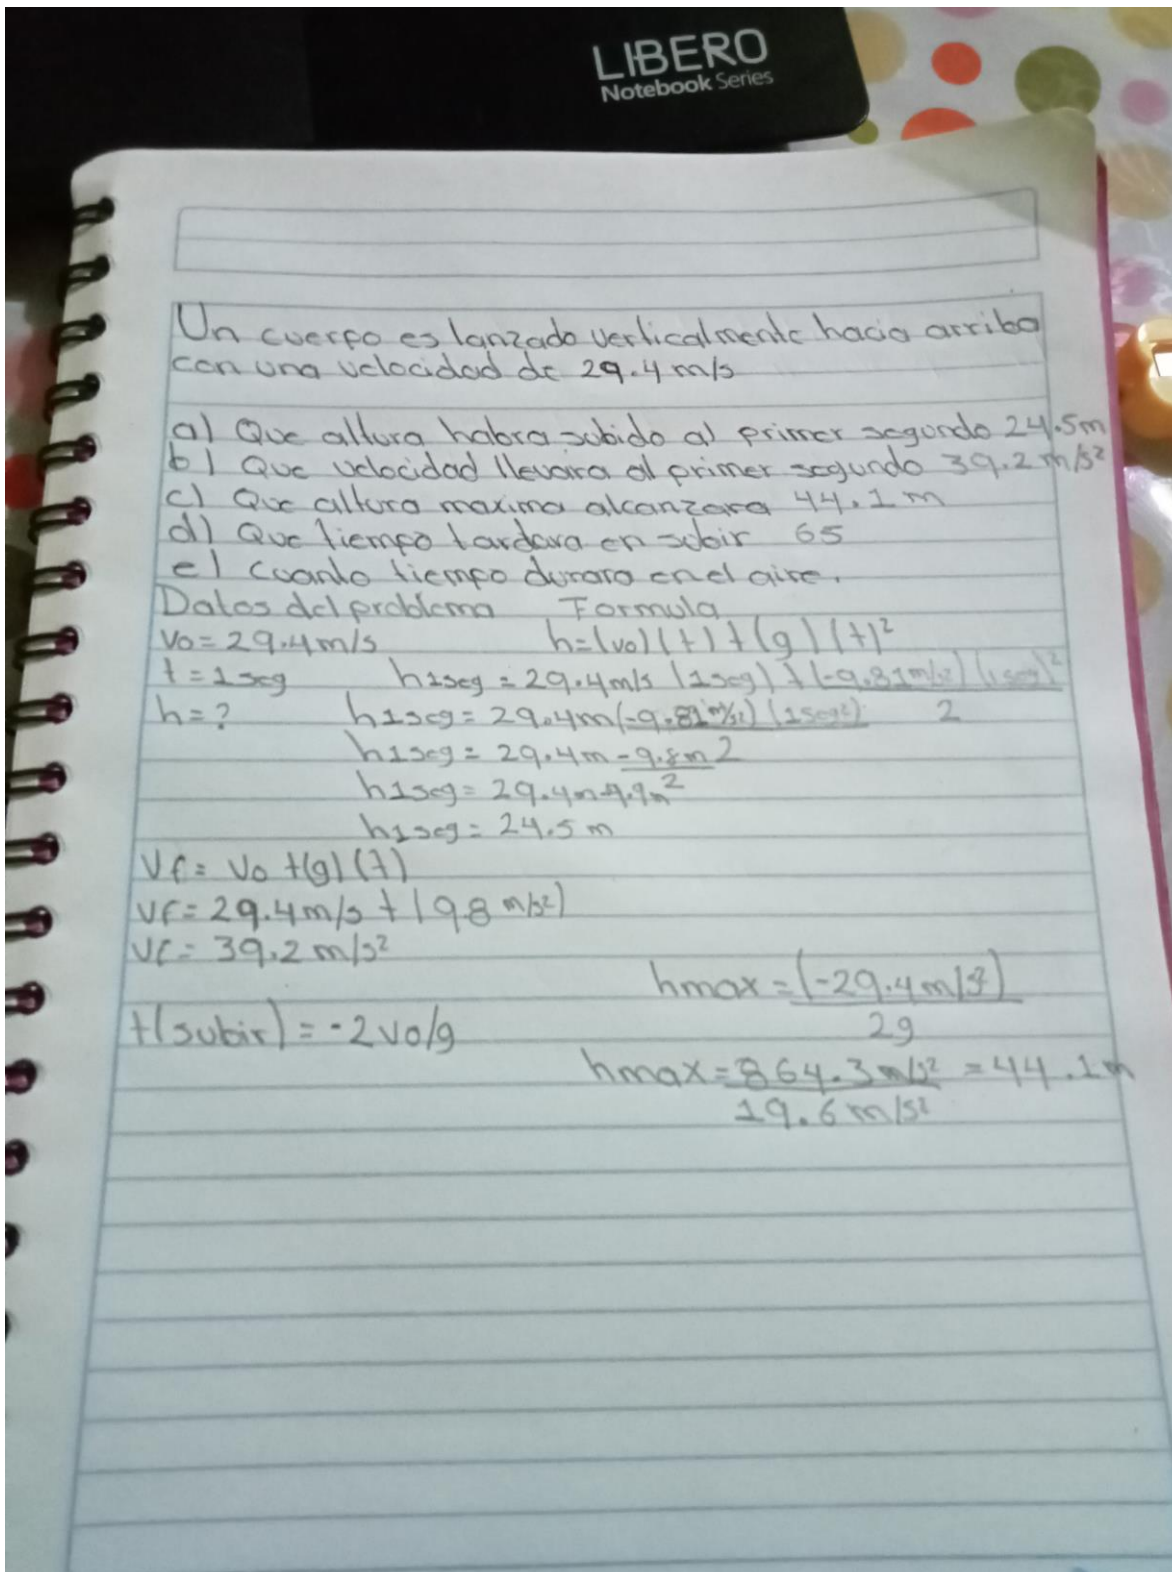 LIBERO
Notebook Series
Un cuerpo es lanzado verticalmente hacia arriba
con una velocidad de 29.4 m/s
a) Que altura habra subido al primer segundo 24.5m
b) Que velocidad llevara al primer segundo 39.2 m/s²
c) Que altura maxima alcanzara 44.1 m
d) Que tiempo tardara en subir 6s
e) cuanto tiempo durara en el aire.
Datos del problema Formula
Vo = 29.4 m/s h=(vo)(t)+(g)(t)²
t = 1seg h1seg = 29.4m/s (1seg) + (-9.81m/s²)(1seg)²
h = ? h1seg = 29.4m(-9.81m/s²)(1seg²) 2
h1seg = 29.4m - 9.8m 2
h1seg = 29.4m-4.9m 2
h1seg = 24.5 m
Vf = Vo +(g)(t)
Vf = 29.4m/s + (9.8 m/s²)
Vf = 39.2 m/s²
hmax = (-29.4m/s²)
t(subir) = -2vo/g 2g
hmax = 864.3m/s² = 44.1m
19.6 m/s²